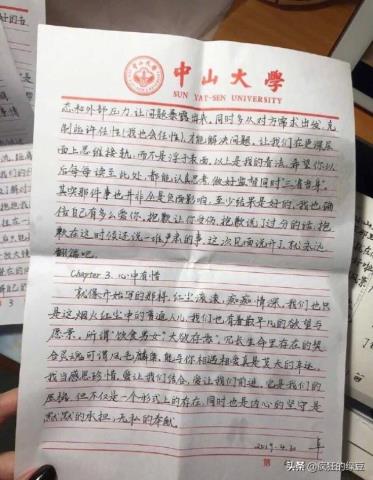 中山大學
SUN YAT-SEN UNIVERSITY
态和外部压力,让问题暴露出来,同时多从对方需求出发,克
制些许任性(我也会任性),才能解决问题,让我们在更深层
面上思维接轨,而不是浮于表面,以上是我的看法,希望你以
后每每读至此处,都能认真思考,做好监督同时"三省吾身"。
其实那件事也并非全是负面影响,至少结果是好的,我也确
信自己有多么爱你,抱歉让你受伤,抱歉说了过分的话,抱
歉在这时候还说一堆严肃的事,这次见面说开了就永远
翻篇吧。
Chapter 3. 心中有惜
就像开始写的那样,红尘滚滚,痴痴情深,我们也只
是这烟火红尘中的普通人儿,我们也有着最平凡的欲望与
愿景。所谓"饮食男女",大欲存焉,冗长生命里存在的契
合灵魂可谓凤毛麟角,能与你相遇相爱真是莫大的幸运。
我当感恩珍惜,爱让我们契合,爱让我们前进,它是我们的
愿景,但不仅是一个形式上的存在,同时也是内心的坚守是
默默的承担,无私的奉献。
2019.4.30
第
头条 @疯狂的绿豆